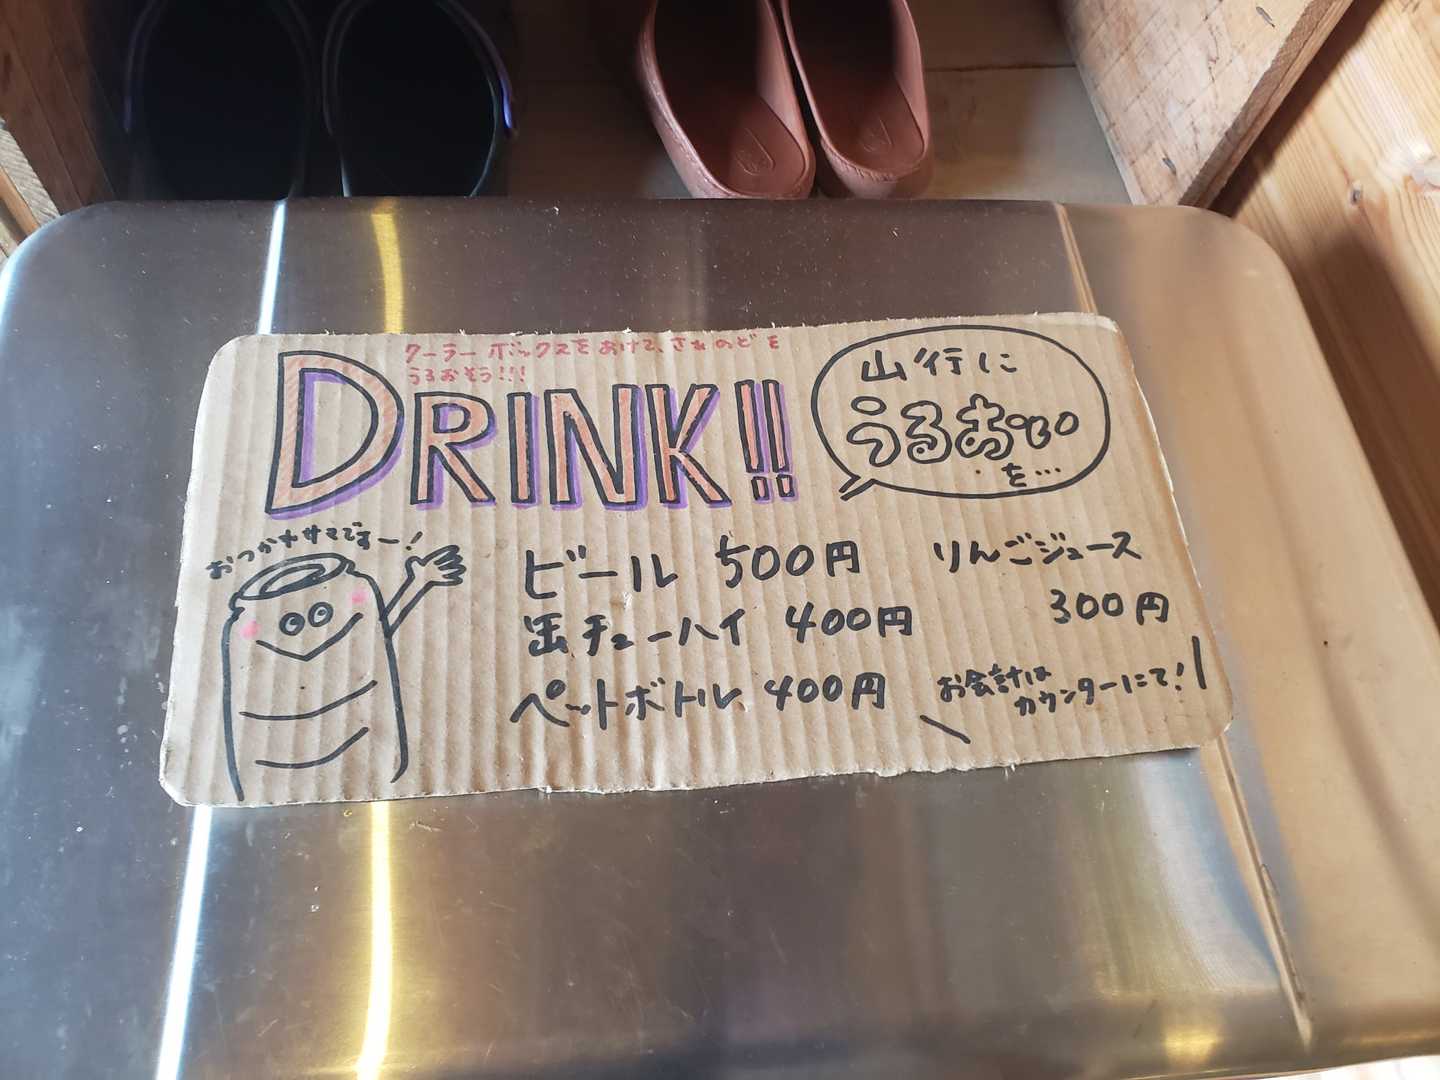 クーラーボックスをあけて、さぁのどを
うるおそう!!!
DRINK!!
山行に
うるおい
を…
おつかれサマですー!
ビール 500円
缶チューハイ 400円
ペットボトル 400円
りんごジュース
300円
お会計は
カウンターにて!